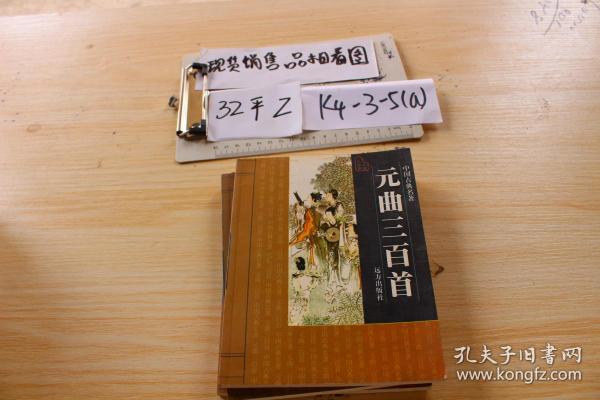 现货销售 品相看图
32平乙
K4-3-5(a)
中国古典名著
元曲三百首
远方出版社
孔夫子旧书网
www.kongfz.com